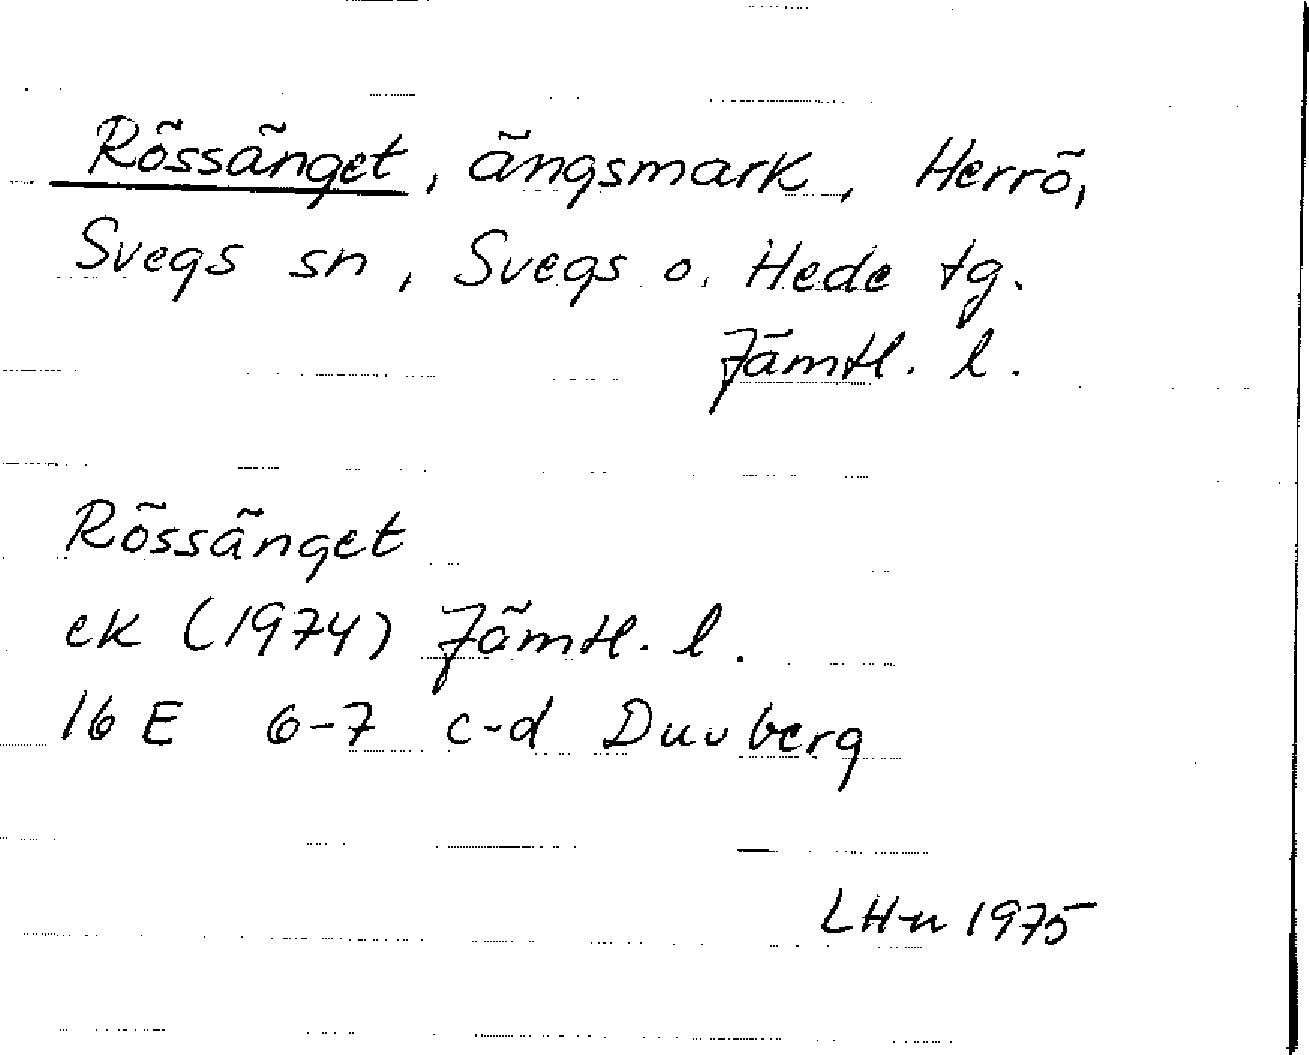 Rössänget, ängsmark, Herrö,
Svegs sn, Svegs o. Hede tg.
Jämtl. l.
Rössänget
ek (1974) Jämtl. l.
16 E 6-7 c-d Duvberg
LH-n 1975